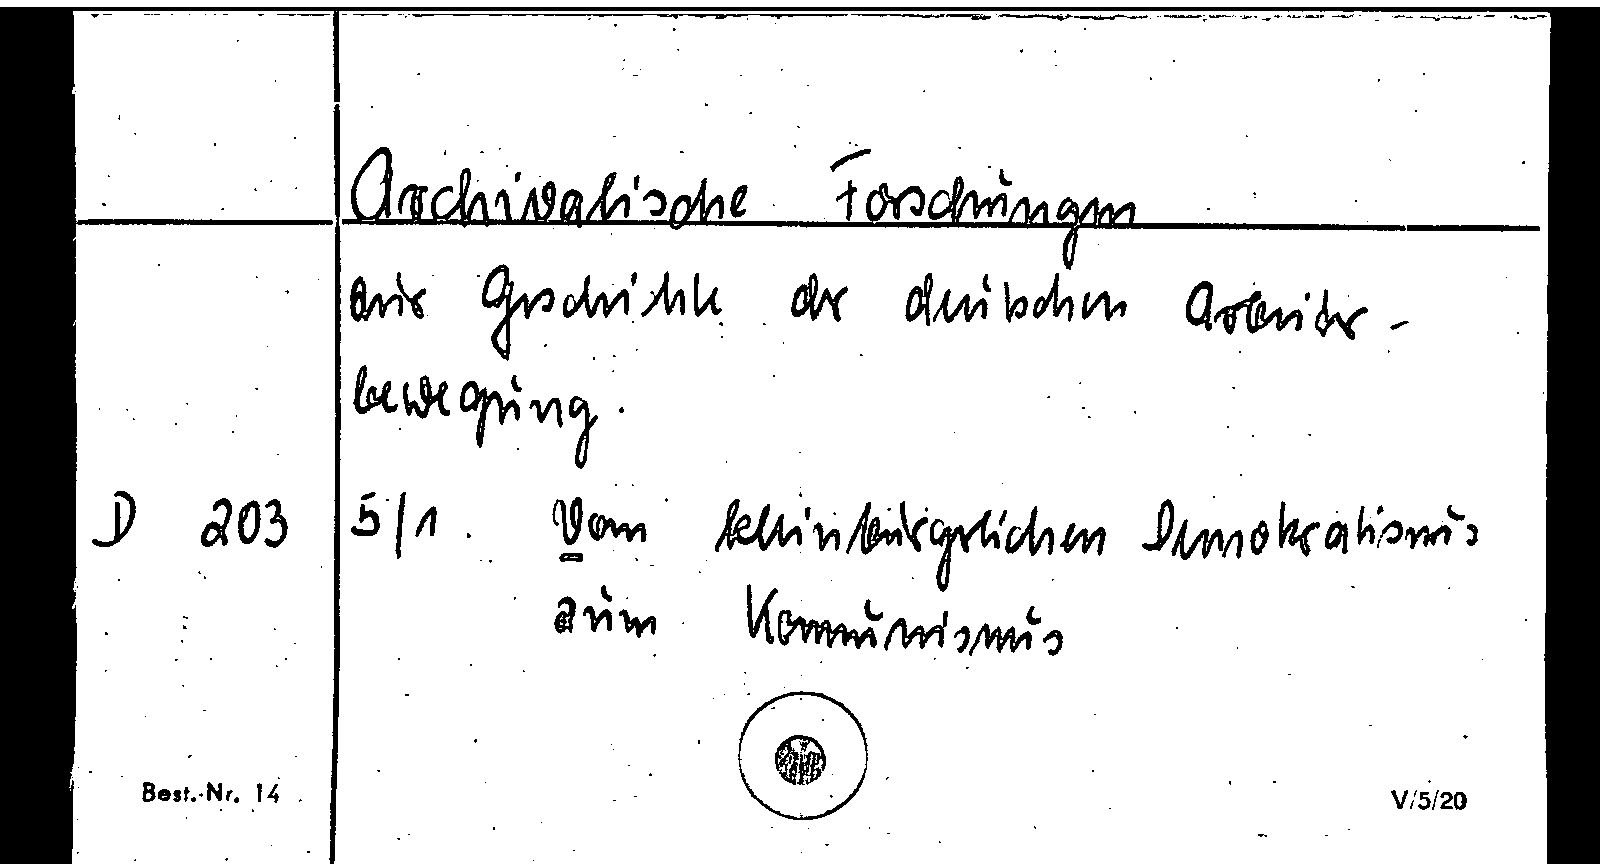 Archivalische Forschungen
zur Geschichte der deutschen Arbeiter-
bewegung.
D 203 5/1. Vom kleinbürgerlichen Demokratismus
zum Kommunismus
Best.-Nr. 14 V/5/20